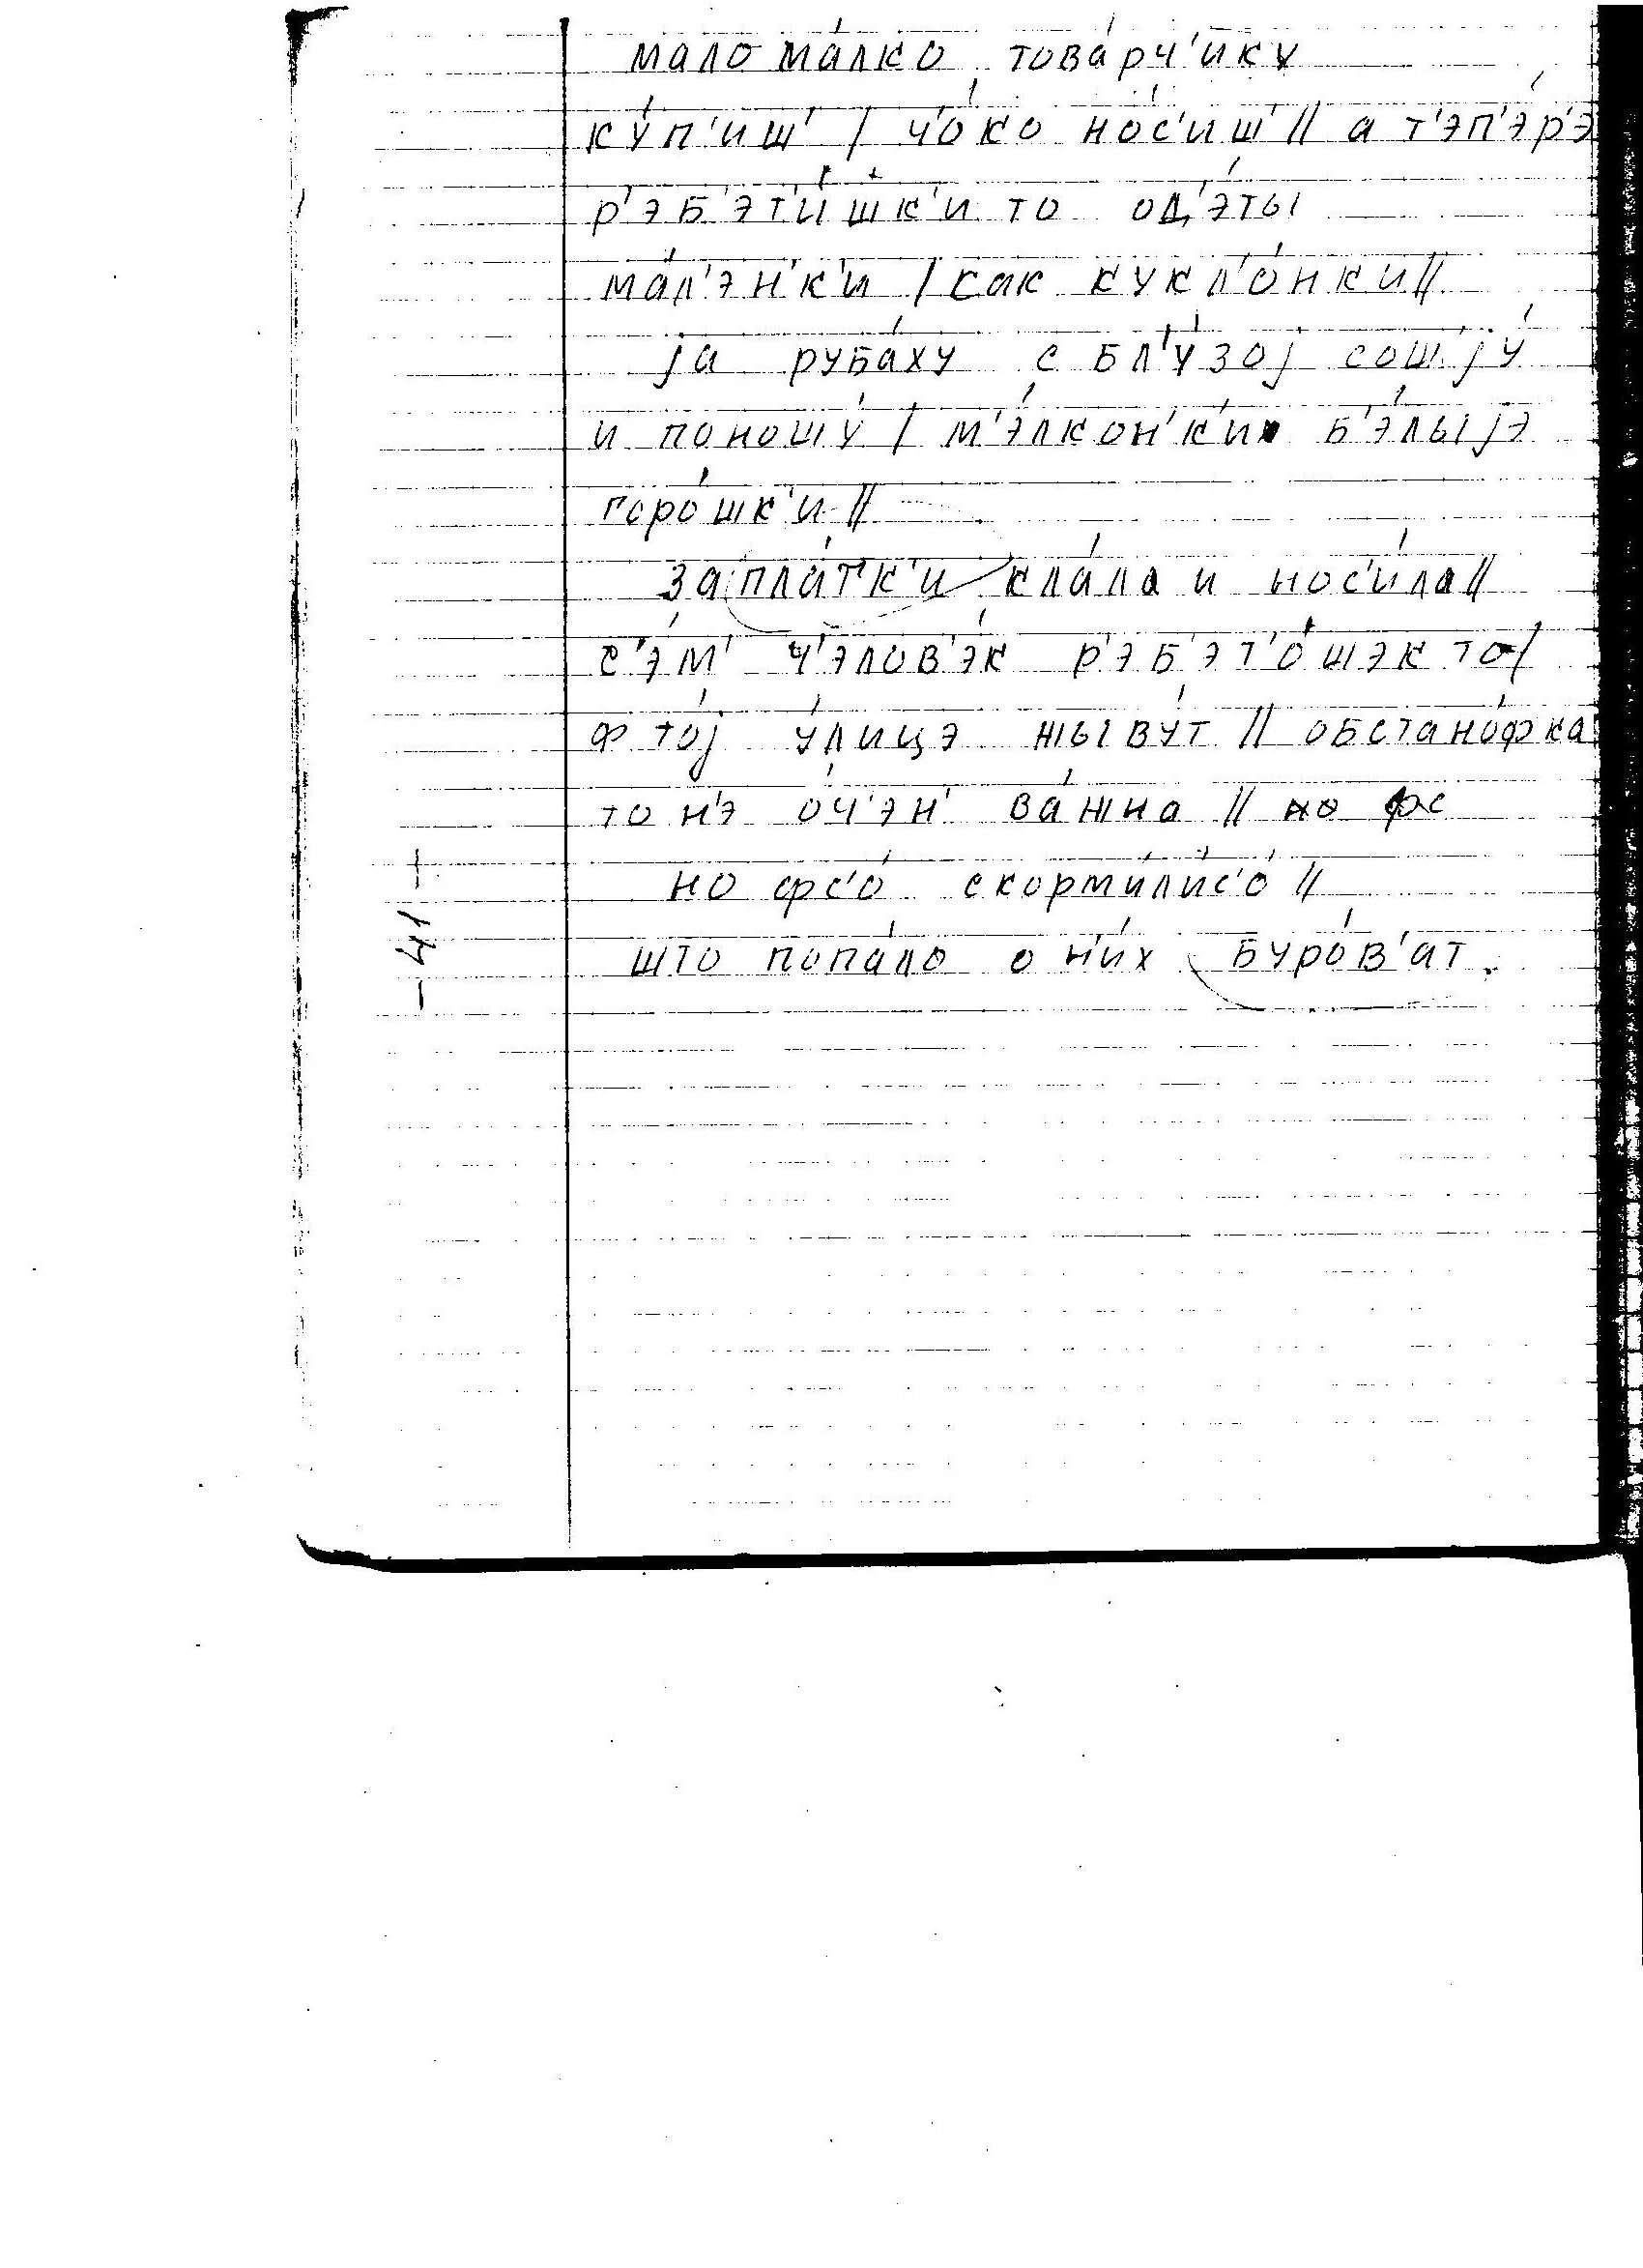 мало ма́лко това́рч'ику
ку́п'иш' / ч'о́ко но́с'иш' // а т'эп'э́р'э
р'эб'эт'и́шк'и то од'э́ты
ма́л'эн'к'и / как кукл'о́нки //
jа руба́ху с бл'у́зоj сошjу́
и поношу́ / м'э́лкон'ки б'э́лыjэ
горо́шк'и //
запла́тк'и кла́ла и нос'и́ла //
с'э́м' ч'элов'э́к р'эб'эт'о́шэк то /
ф то́j у́лицэ жыву́т // обстано́фка
то н'э о́ч'эн' ва́жна // но фс
но фс'о́ скорм'и́лис'о́ //
што попа́ло о н'и́х буро́в'ат.
– 41 –